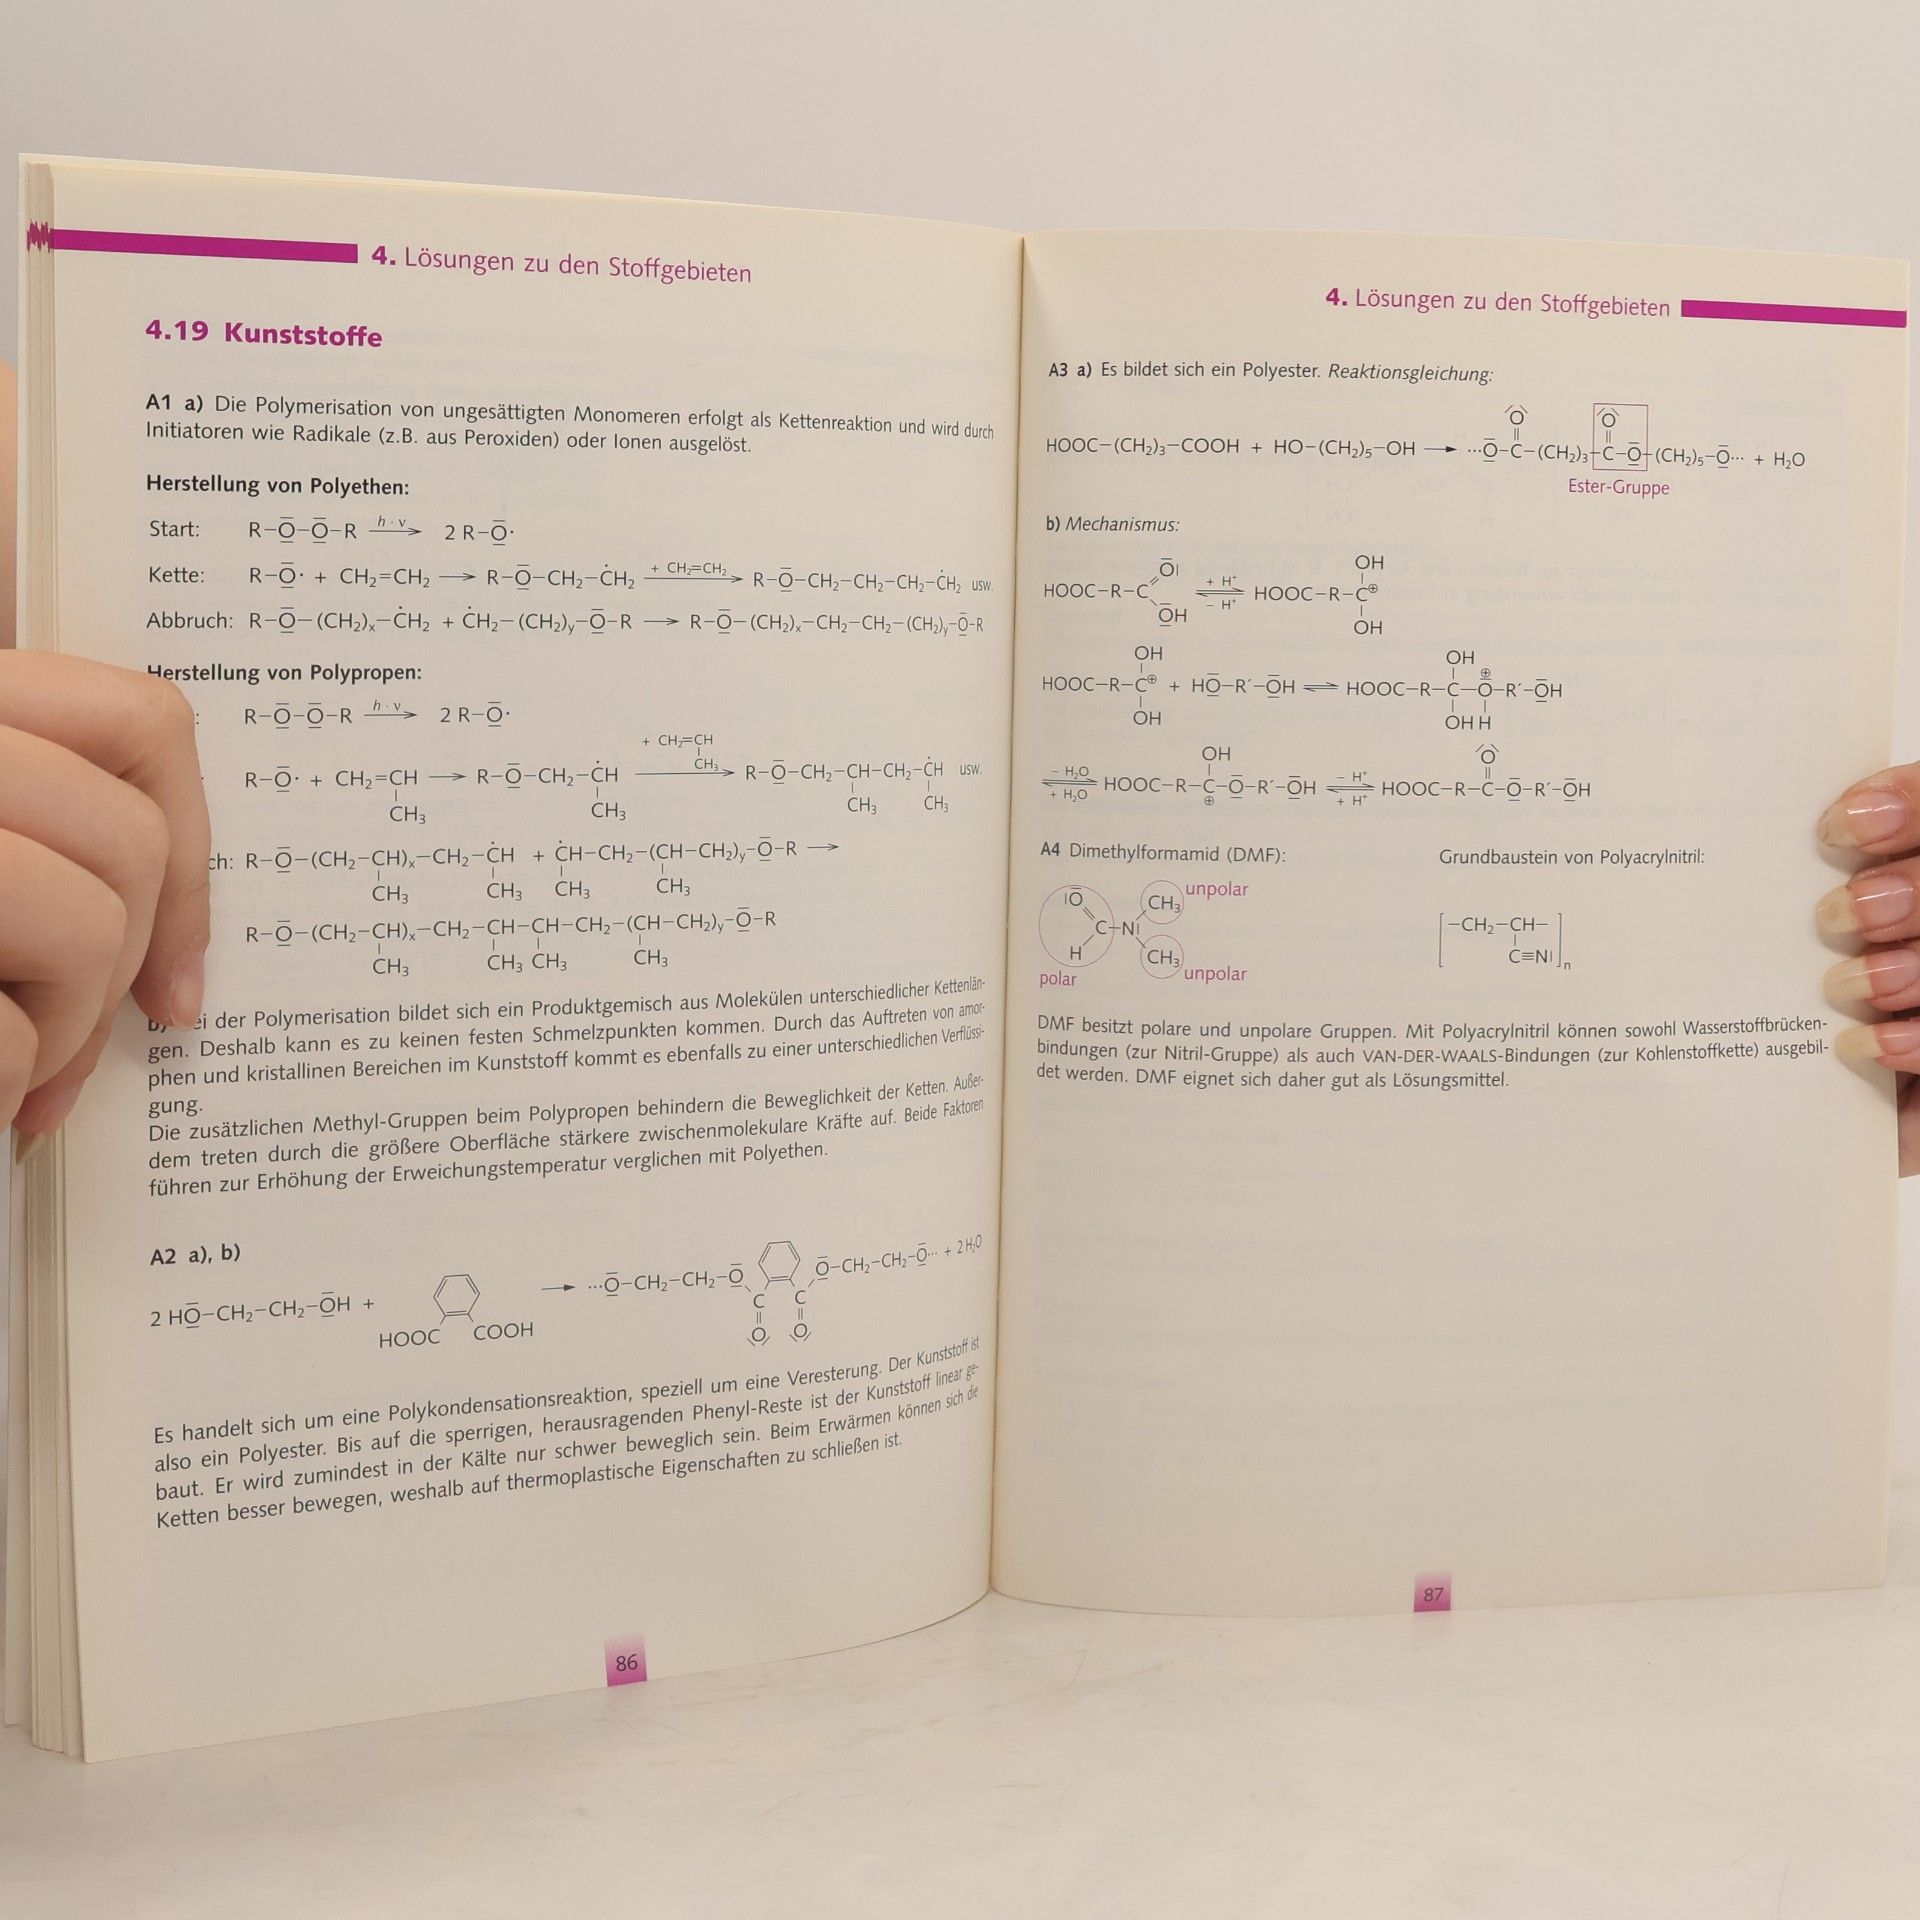 4. Lösungen zu den Stoffgebieten
4.19 Kunststoffe
A1 a) Die Polymerisation von ungesättigten Monomeren erfolgt als Kettenreaktion und wird durch
Initiatoren wie Radikale (z.B. aus Peroxiden) oder Ionen ausgelöst.
Herstellung von Polyethen:
Start: R–O̲̅–O̲̅–R –h·ν→ 2 R–O̲̅·
Kette: R–O̲̅· + CH₂=CH₂ → R–O̲̅–CH₂–ĊH₂ –+ CH₂=CH₂→ R–O̲̅–CH₂–CH₂–CH₂–ĊH₂ usw.
Abbruch: R–O̲̅–(CH₂)ₓ–ĊH₂ + ĊH₂–(CH₂)ᵧ–O̲̅–R → R–O̲̅–(CH₂)ₓ–CH₂–CH₂–(CH₂)ᵧ–O̲̅–R
Herstellung von Polypropen:
: R–O̲̅–O̲̅–R –h·ν→ 2 R–O̲̅·
+ CH₂=CH
CH₃
: R–O̲̅· + CH₂=CH → R–O̲̅–CH₂–ĊH → R–O̲̅–CH₂–CH–CH₂–ĊH usw.
CH₃ CH₃ CH₃ CH₃
ch: R–O̲̅–(CH₂–CH)ₓ–CH₂–ĊH + ĊH–CH₂–(CH–CH₂)ᵧ–O̲̅–R →
CH₃ CH₃ CH₃ CH₃
R–O̲̅–(CH₂–CH)ₓ–CH₂–CH–CH–CH₂–(CH–CH₂)ᵧ–O̲̅–R
CH₃ CH₃ CH₃ CH₃
b) ei der Polymerisation bildet sich ein Produktgemisch aus Molekülen unterschiedlicher Kettenlän-
gen. Deshalb kann es zu keinen festen Schmelzpunkten kommen. Durch das Auftreten von amor-
phen und kristallinen Bereichen im Kunststoff kommt es ebenfalls zu einer unterschiedlichen Verflüssi-
gung.
Die zusätzlichen Methyl-Gruppen beim Polypropen behindern die Beweglichkeit der Ketten. Außer-
dem treten durch die größere Oberfläche stärkere zwischenmolekulare Kräfte auf. Beide Faktoren
führen zur Erhöhung der Erweichungstemperatur verglichen mit Polyethen.
A2 a), b)
2 HO̲̅–CH₂–CH₂–O̅H + → ···O̲̅–CH₂–CH₂–O̲̅ O̲̅–CH₂–CH₂–O̲̅··· + 2 H₂O
HOOC COOH C C
O O
Es handelt sich um eine Polykondensationsreaktion, speziell um eine Veresterung. Der Kunststoff ist
also ein Polyester. Bis auf die sperrigen, herausragenden Phenyl-Reste ist der Kunststoff linear ge-
baut. Er wird zumindest in der Kälte nur schwer beweglich sein. Beim Erwärmen können sich die
Ketten besser bewegen, weshalb auf thermoplastische Eigenschaften zu schließen ist.
86
4. Lösungen zu den Stoffgebieten
A3 a) Es bildet sich ein Polyester. Reaktionsgleichung:
O O
HOOC–(CH₂)₃–COOH + HO–(CH₂)₅–OH → ···O̲̅–C–(CH₂)₃–C–O̲̅–(CH₂)₅–O̲̅··· + H₂O
Ester-Gruppe
b) Mechanismus:
O̅I OH
HOOC–R–C + H⁺ ⇌ – H⁺ HOOC–R–C⊕
O̲̅H OH
OH OH
HOOC–R–C⊕ + HO̲̅–R´–O̲̅H ⇌ HOOC–R–C–O̲⊕–R´–O̲̅H
OH OH H
OH O
– H₂O ⇌ + H₂O HOOC–R–C–O̲̅–R´–O̲̅H – H⁺ ⇌ + H⁺ HOOC–R–C–O̲̅–R´–O̲̅H
⊕
A4 Dimethylformamid (DMF): Grundbaustein von Polyacrylnitril:
IO̅ CH₃ unpolar
C–NI [–CH₂–CH–
H CH₃ C≡NI]ₙ
polar unpolar
DMF besitzt polare und unpolare Gruppen. Mit Polyacrylnitril können sowohl Wasserstoffbrücken-
bindungen (zur Nitril-Gruppe) als auch VAN-DER-WAALS-Bindungen (zur Kohlenstoffkette) ausgebil-
det werden. DMF eignet sich daher gut als Lösungsmittel.
87